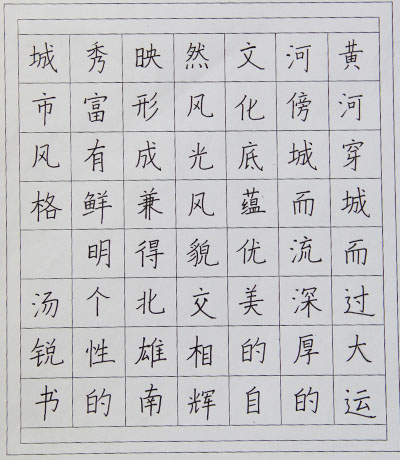 黄河穿城而过大运
河傍城而流深厚的
文化底蕴优美的自
然风光风貌交相辉
映形成兼得北雄南
秀富有鲜明个性的
城市风格 汤锐书